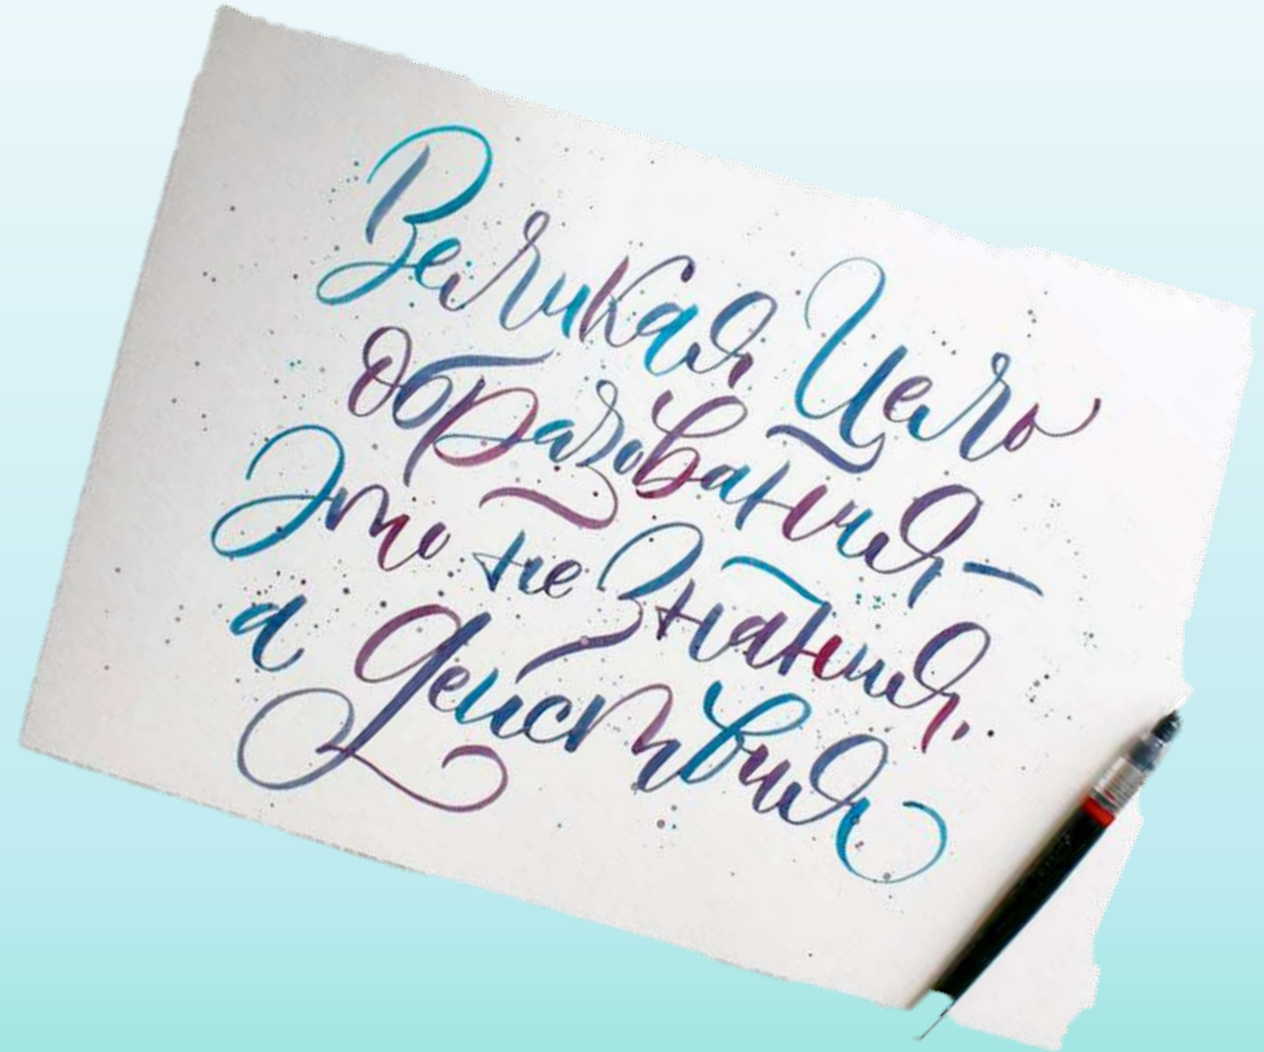 Великая Цель
образования–
Это не Знания,
а действия